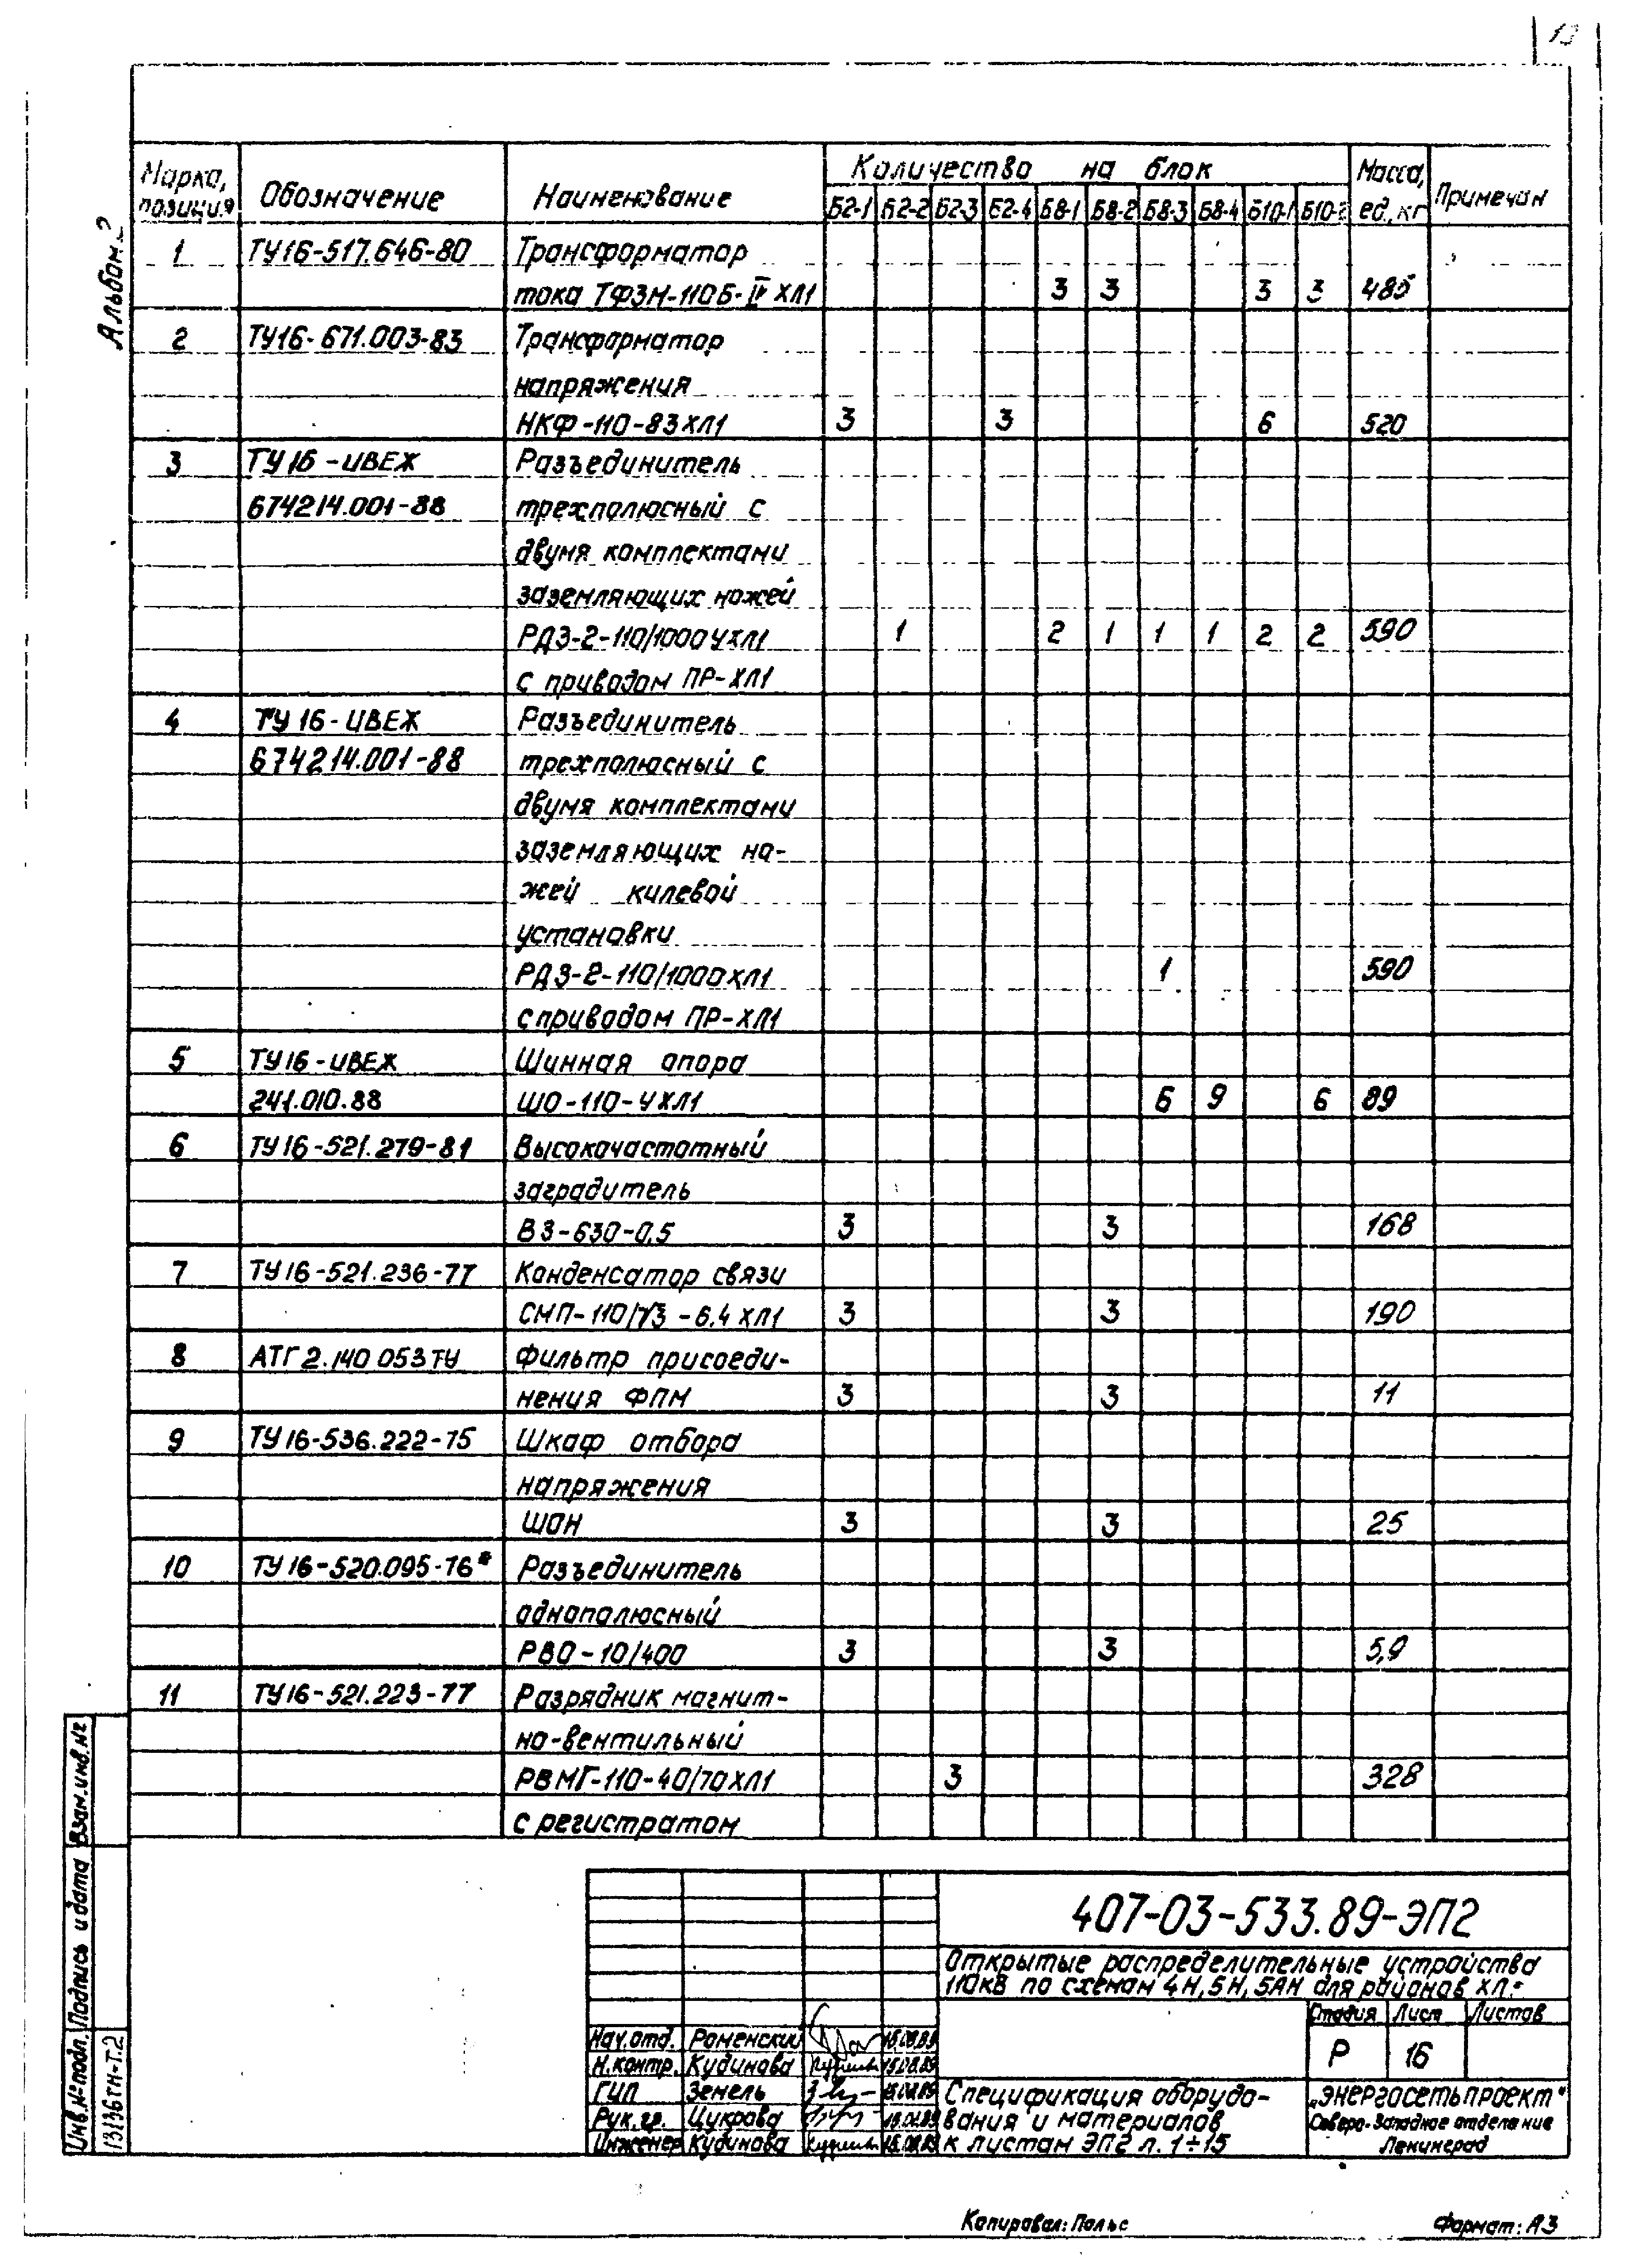 13
Альбом 2
Марка, позиция Обозначение Наименование Количество на блок Масса, ед., кг Примечан
Б2-1 Б2-2 Б2-3 Б2-4 Б8-1 Б8-2 Б8-3 Б8-4 Б10-1 Б10-2
1 ТУ16-517.646-80 Трансформатор
тока ТФЗМ-110Б-IV ХЛ1 3 3 3 3 485
2 ТУ16-671.003-83 Трансформатор
напряжения
НКФ-110-83ХЛ1 3 3 6 520
3 ТУ16-ИВЕЖ Разъединитель
674214.001-88 трехполюсный с
двумя комплектами
заземляющих ножей
РДЗ-2-110/1000УХЛ1 1 2 1 1 1 2 2 590
с приводом ПР-ХЛ1
4 ТУ16-ИВЕЖ Разъединитель
674214.001-88 трехполюсный с
двумя комплектами
заземляющих но-
жей килевой
установки
РДЗ-2-110/1000ХЛ1 1 590
с приводом ПР-ХЛ1
5 ТУ16-ИВЕЖ Шинная опора
241.010.88 ШО-110-УХЛ1 6 9 6 89
6 ТУ16-521.279-81 Высокочастотный
заградитель
ВЗ-630-0,5 3 3 168
7 ТУ16-521.236-77 Конденсатор связи
СМП-110/√3-6,4 ХЛ1 3 3 190
8 АТГ2.140 053ТУ Фильтр присоеди-
нения ФПМ 3 3 11
9 ТУ16-536.222-75 Шкаф отбора
напряжения
ШОН 3 3 25
10 ТУ16-520.095-76* Разъединитель
однополюсный
РВО-10/400 3 3 5,9
11 ТУ16-521.223-77 Разрядник магнит-
но-вентильный
РВМГ-110-40/70ХЛ1 3 328
с регистратом
Взам.инв.№
Подпись и дата
Инв.№подл.
13136тм-т.2
407-03-533.89-ЭП2
Открытые распределительные устройства
110кВ по схемам 4Н,5Н,5АН для районов ХЛ.
Стадия Лист Листов
Р 16
Нач.отд. Роменский 15.08.89
Н.контр. Кудинова 15.08.89
ГИП Земель 15.08.89
Рук.гр. Цукрова 15.08.89
Инженер Кудинова 15.08.89
Спецификация оборудо-
вания и материалов
к листам ЭП2 л. 1÷15
„ЭНЕРГОСЕТЬПРОЕКТ"
Северо-Западное отделение
Ленинград
Копировал: Польс
Формат: А3